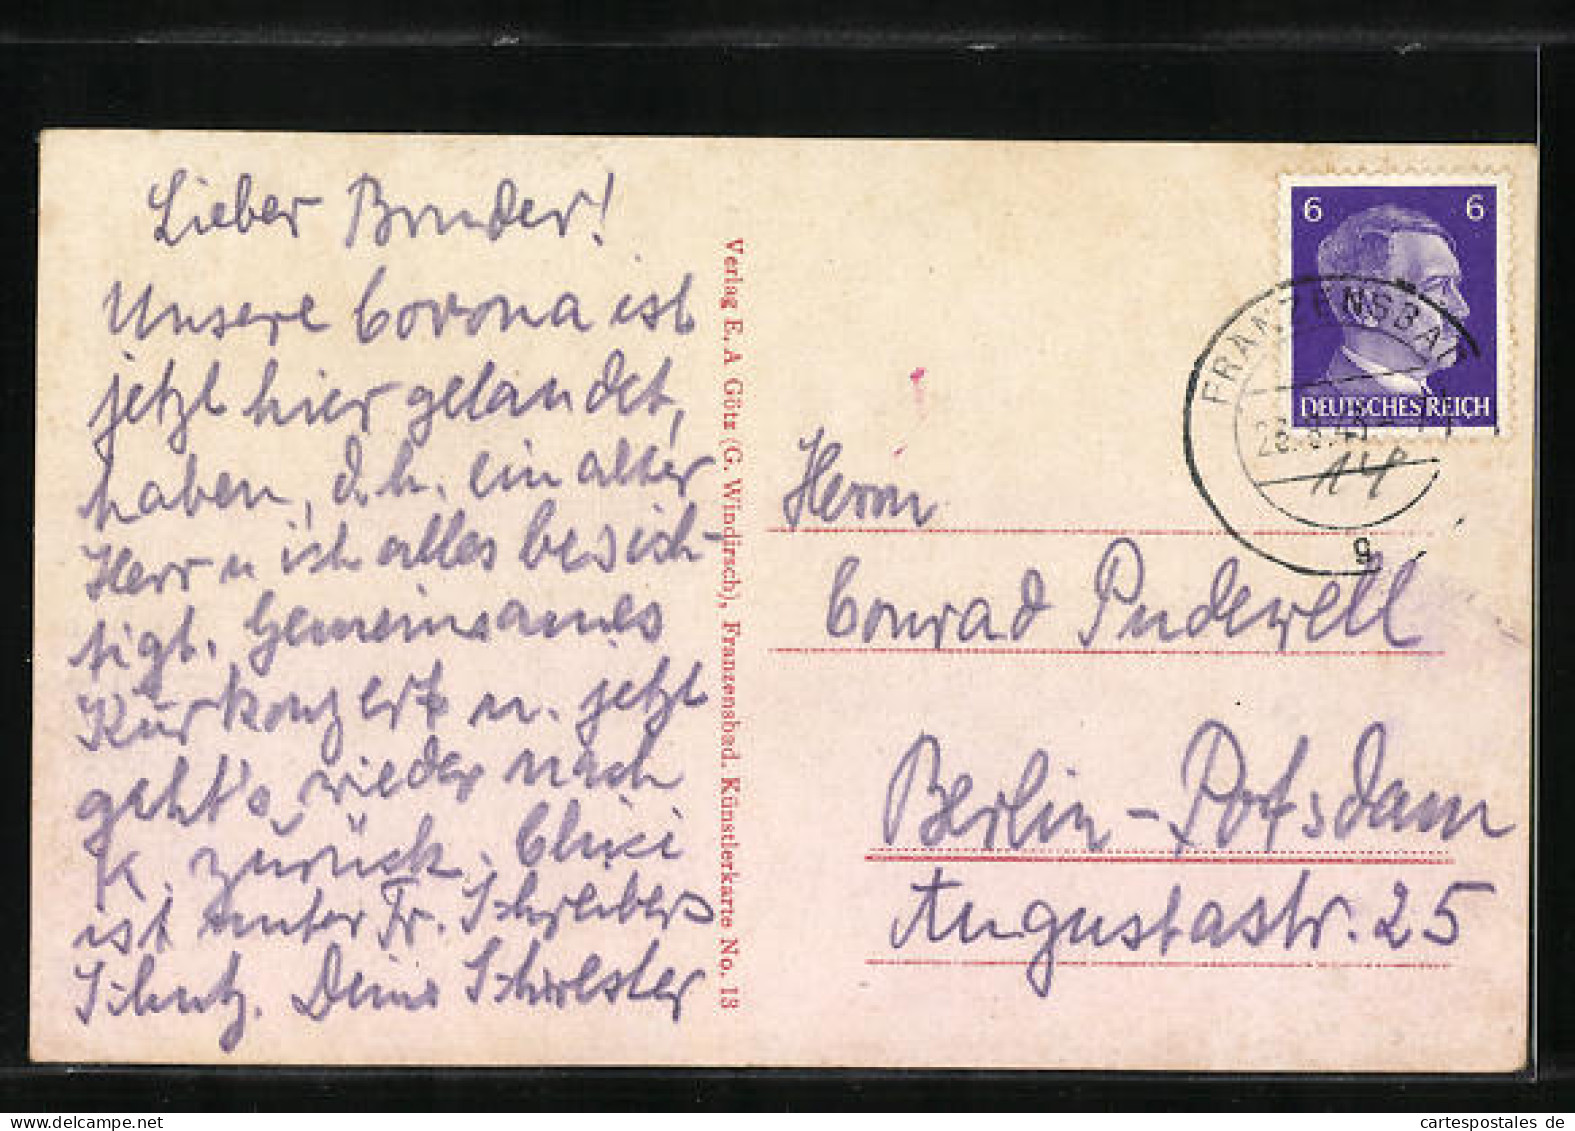 Lieber Bruder!
Unsere Corona ist
jetzt hier gelandet,
haben, d.h. ein alter
Herr u ich alles besich-
tigt. Gemeinsames
Kurkonzert u. jetzt
geht's wieder nach
K. zurück.
ist unter Fr. Schreibers
Schutz. Deine Schwester
Verlag E. A Götz (G. Windirsch), Franzensbad. Künstlerkarte No. 13
6 6
DEUTSCHES REICH
FRANZENSBAD
g
Herrn
Conrad Pudewell
Berlin-Potsdam
Augustastr. 25
www.delcampe.net
cartespostales de